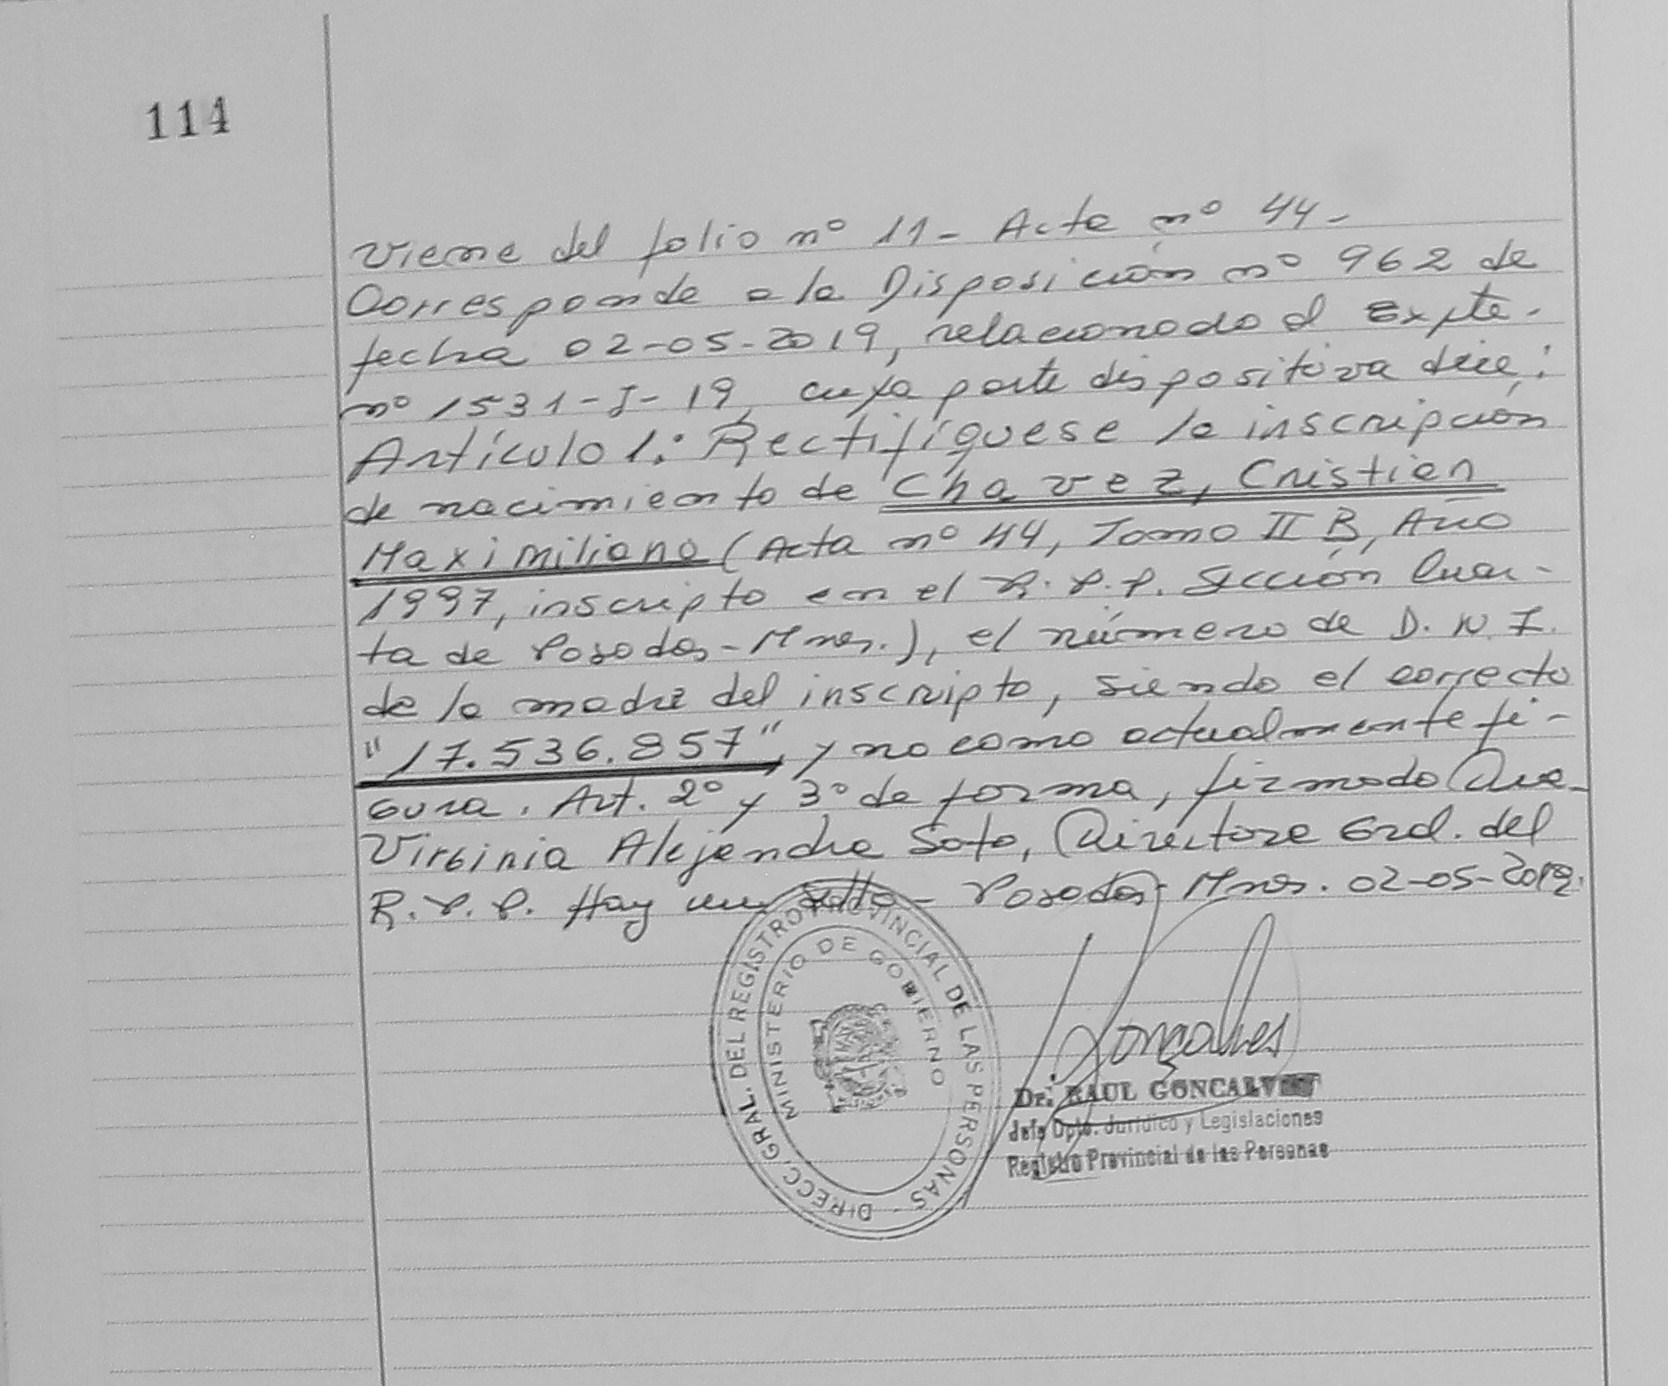 114
Viene del folio nº 11 - Acta nº 44 -
Corresponde a la Disposición nº 962 de
fecha 02-05-2019, relacionado al Expte.
nº 1531-I-19, cuya parte dispositiva dice:
Artículo 1: Rectifíquese la inscripción
de nacimiento de Chavez, Cristian
Maximiliano (Acta nº 44, Tomo II B, Año
1997, inscripto en el R.P.P. Sección Cuar-
ta de Posadas - Mnes.), el número de D.N.I.
de la madre del inscripto, siendo el correcto
"17.536.857", y no como actualmente fi-
gura. Art. 2º y 3º de forma, firmado
Virginia Alejandra Soto, Directora Gral. del
R.P.P. Hay un sello - Posadas - Mnes. 02-05-2019.
DIRECC. GRAL. DEL REGISTRO PROVINCIAL DE LAS PERSONAS -
MINISTERIO DE GOBIERNO
Goncalves
Dr. RAUL GONCALVES
Jefe Dpto. Jurídico y Legislaciones
Registro Provincial de las Personas